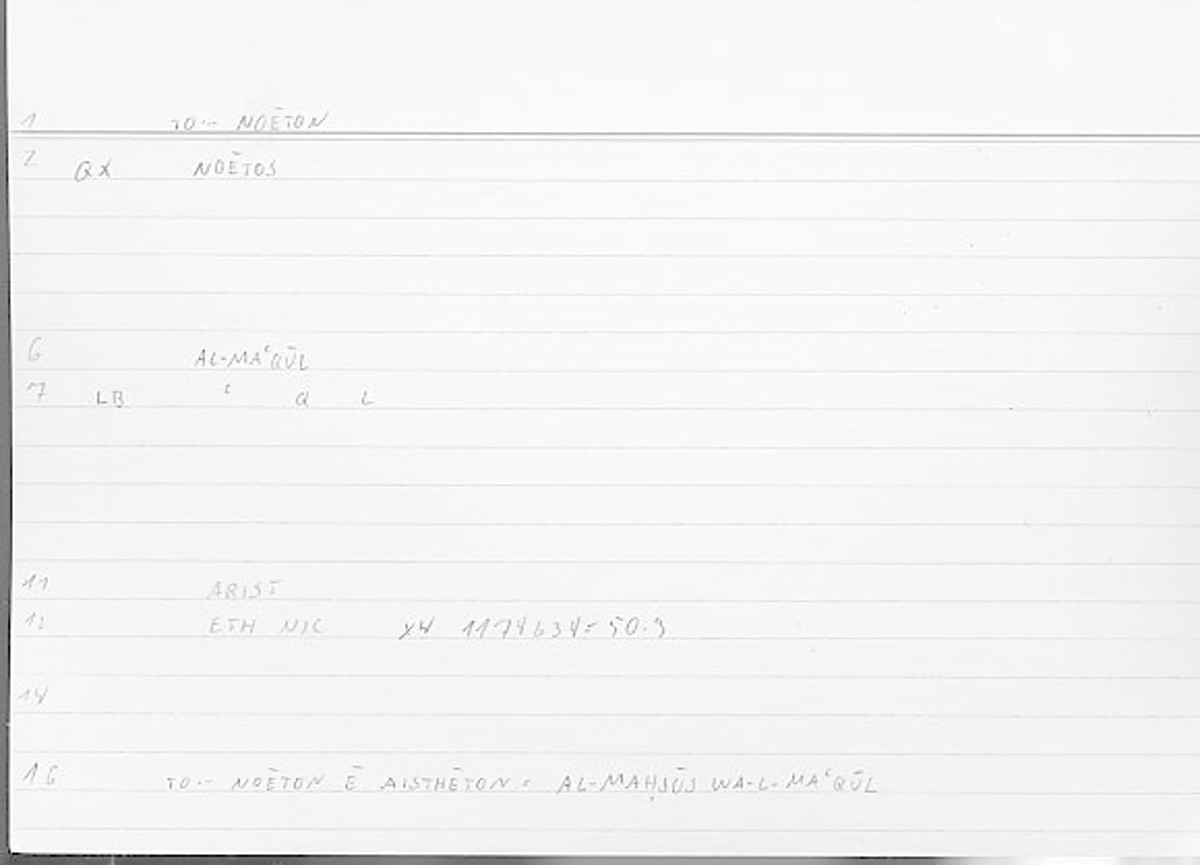 1 TO·- NOĒTON
2 QX NOĒTOS
6 AL-MAʿQŪL
7 LB ʿ Q L
11 ARIST
12 ETH NIC X4 1174b34 = 50.9
14
16 TO·- NOĒTON Ē AISTHĒTON = AL-MAḤSŪS WA-L-MAʿQŪL